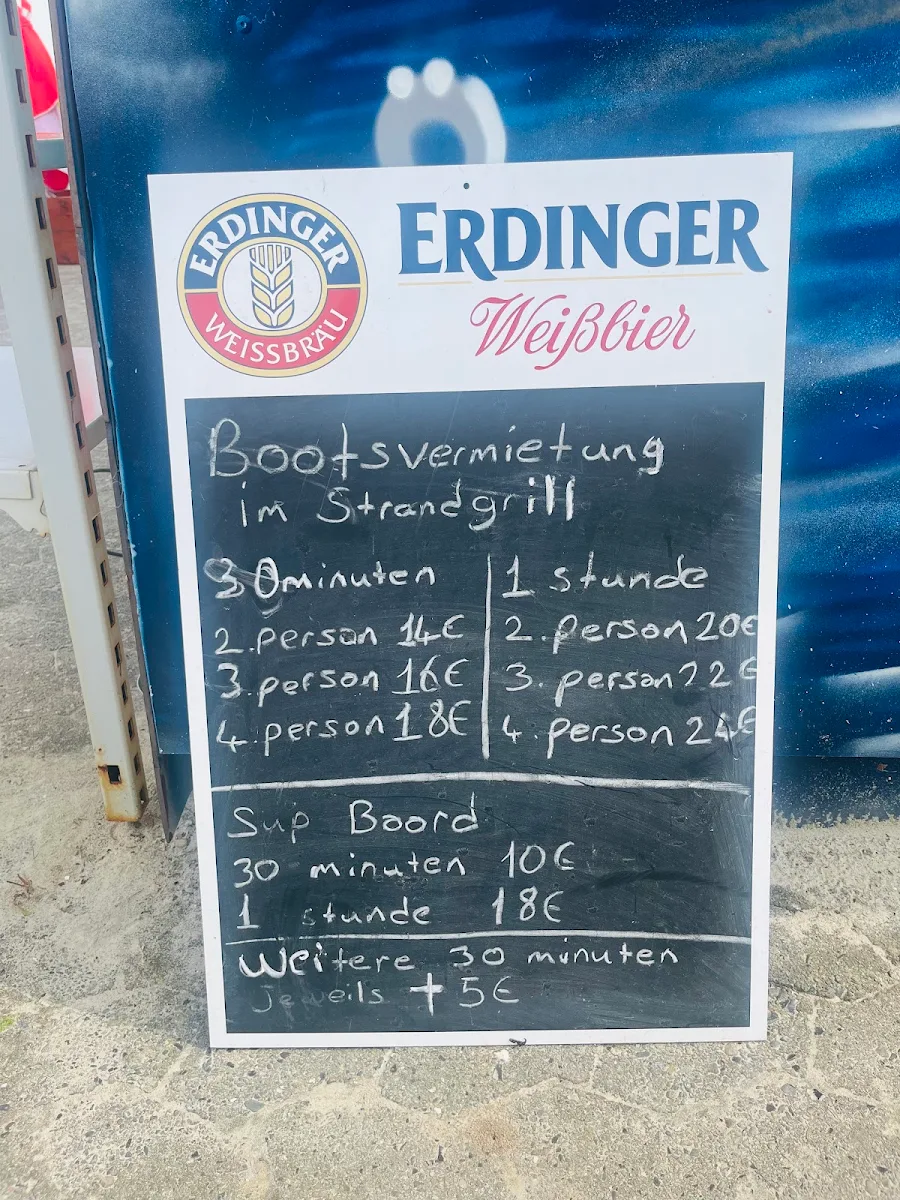 ERDINGER
WEISSBRÄU
ERDINGER
Weißbier
Bootsvermietung
im Strandgrill
30minuten
2.person 14€
3.person 16€
4.person 18€
1 stunde
2.person 20€
3.person 22€
4.person 24€
Sup Boord
30 minuten 10€
1 stunde 18€
Weitere 30 minuten
jeweils +5€